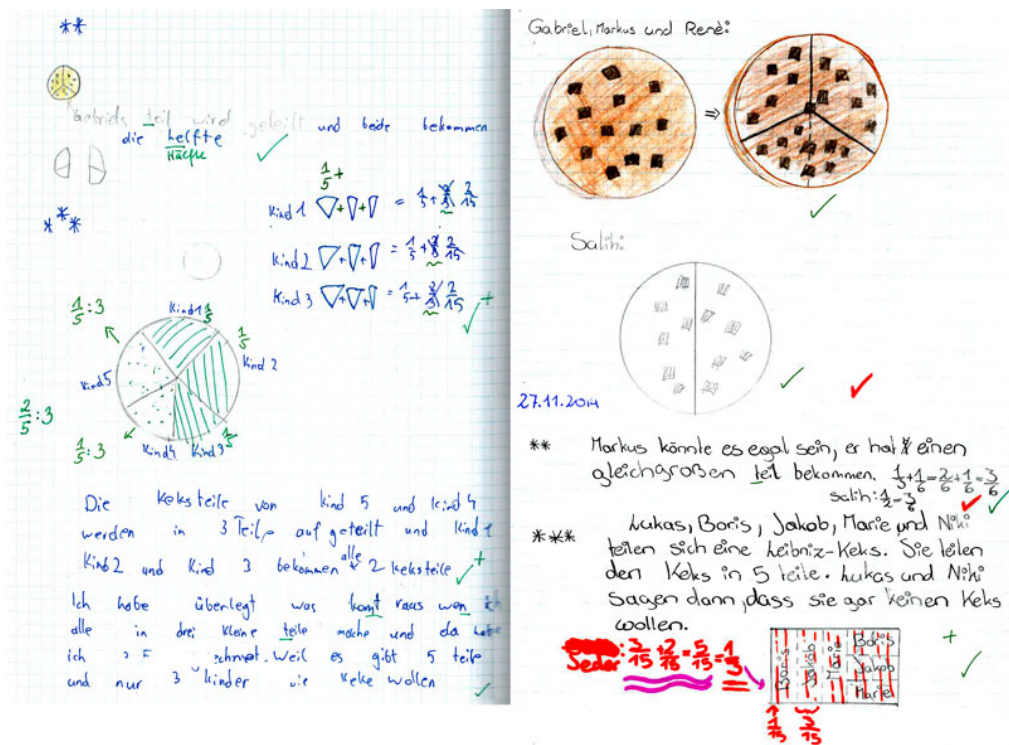 **
Gabriels teil wird geteilt und beide bekommen
die helfte
Hälfte
***
1/5 +
Kind 1 + + = 1/5 + 2/15
Kind 2 + + = 1/5 + 2/15
Kind 3 + + = 1/5 + 2/15
+
1/5 : 3
Kind 1 1/5
1/5
Kind 2
Kind 5
2/5 : 3
1/5 : 3
Kind 4
Kind 3
1/5
Die Keksteile von kind 5 und kind 4
werden in 3 Teile auf geteilt und Kind 1
Kind 2 und Kind 3 bekommen alle 2 keksteile
+
Ich habe überlegt was komt raus wen ich
alle in drei kleine teile mache und da habe
ich Weil es gibt 5 teile
und nur 3 kinder die keke wollen
Gabriel, Markus und Renè:
⇒
Salih:
27.11.2014
** Markus könnte es egal sein, er hat einen
gleichgroßen teil bekommen. 1/3 + 1/6 = 2/6 + 1/6 = 3/6
Salih: 1/2 = 3/6
*** Lukas, Boris, Jakob, Marie und Niki
teilen sich eine Leibniz-Keks. Sie teilen
den Keks in 5 teile. Lukas und Niki
sagen dann, dass sie gar keinen Keks
wollen.
Jeder: 3/15 + 2/15 = 5/15 = 1/3
Boris
Jakob
Marie
Boris
Jakob
Marie
+
1/15
3/15